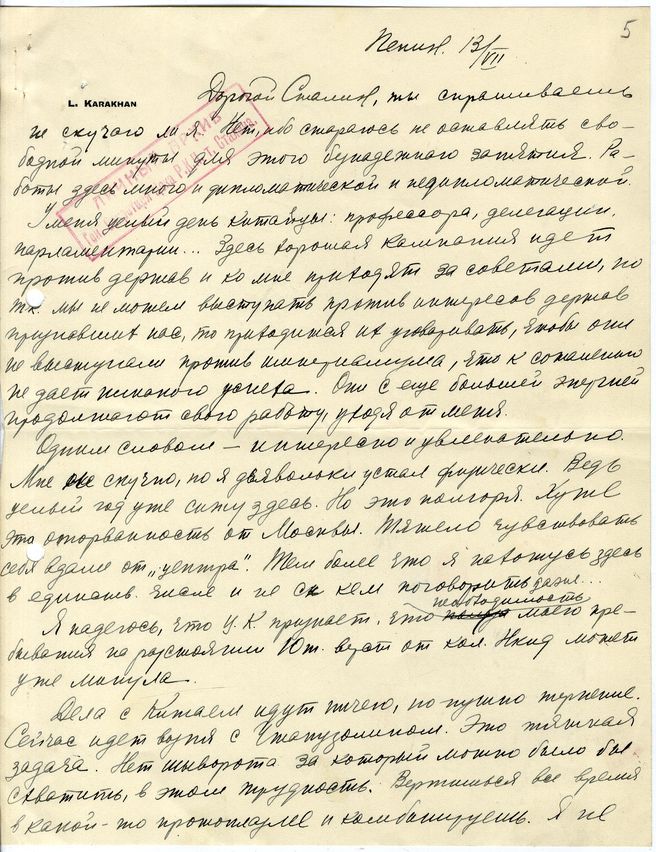 5
Пекин. 13/VII
L. KARAKHAN
Дорогой Сталин, ты спрашиваешь
не скучаю ли я. Нет, ибо стараюсь не оставлять сво-
бодной минуты для этого безнадежного занятия. Ра-
боты здесь много и дипломатической и недипломатической.
У меня целый день китайцы: профессора, делегации,
парламентарии... Здесь хорошая кампания идет
против держав и ко мне приходят за советами, но
т.к. мы не можем выступать против интересов держав
признавших нас, то приходится их уговаривать, чтобы они
не выступали против империализма, что к сожалению
не дает никакого успеха. Они с еще большей энергией
продолжают свою работу, уходя от меня.
Одним словом — интересно и увлекательно.
Мне не скучно, но я дьявольски устал физически. Ведь
целый год уже сижу здесь. Но это полгоря. Хуже
это оторванность от Москвы. Тяжело чувствовать
себя вдали от „центра". Тем более что я нахожусь здесь
в единств. числе и не с кем поговорить даже...
Я надеюсь, что Ц.К признает, что необходимость моего пре-
бывания на расстоянии 10т. верст от кол. Нкид может
уже минула.
Дела с Китаем идут ничего, но нужно терпение.
Сейчас идет возня с Чжанузолином. Это тяжкая
задача. Нет шиворота за который можно было бы
схватить, в этом трудность. Вертишься все время
в какой-то протоплазме и комбинируешь. Я не
ЛИЧНЫЙ АРХИВ